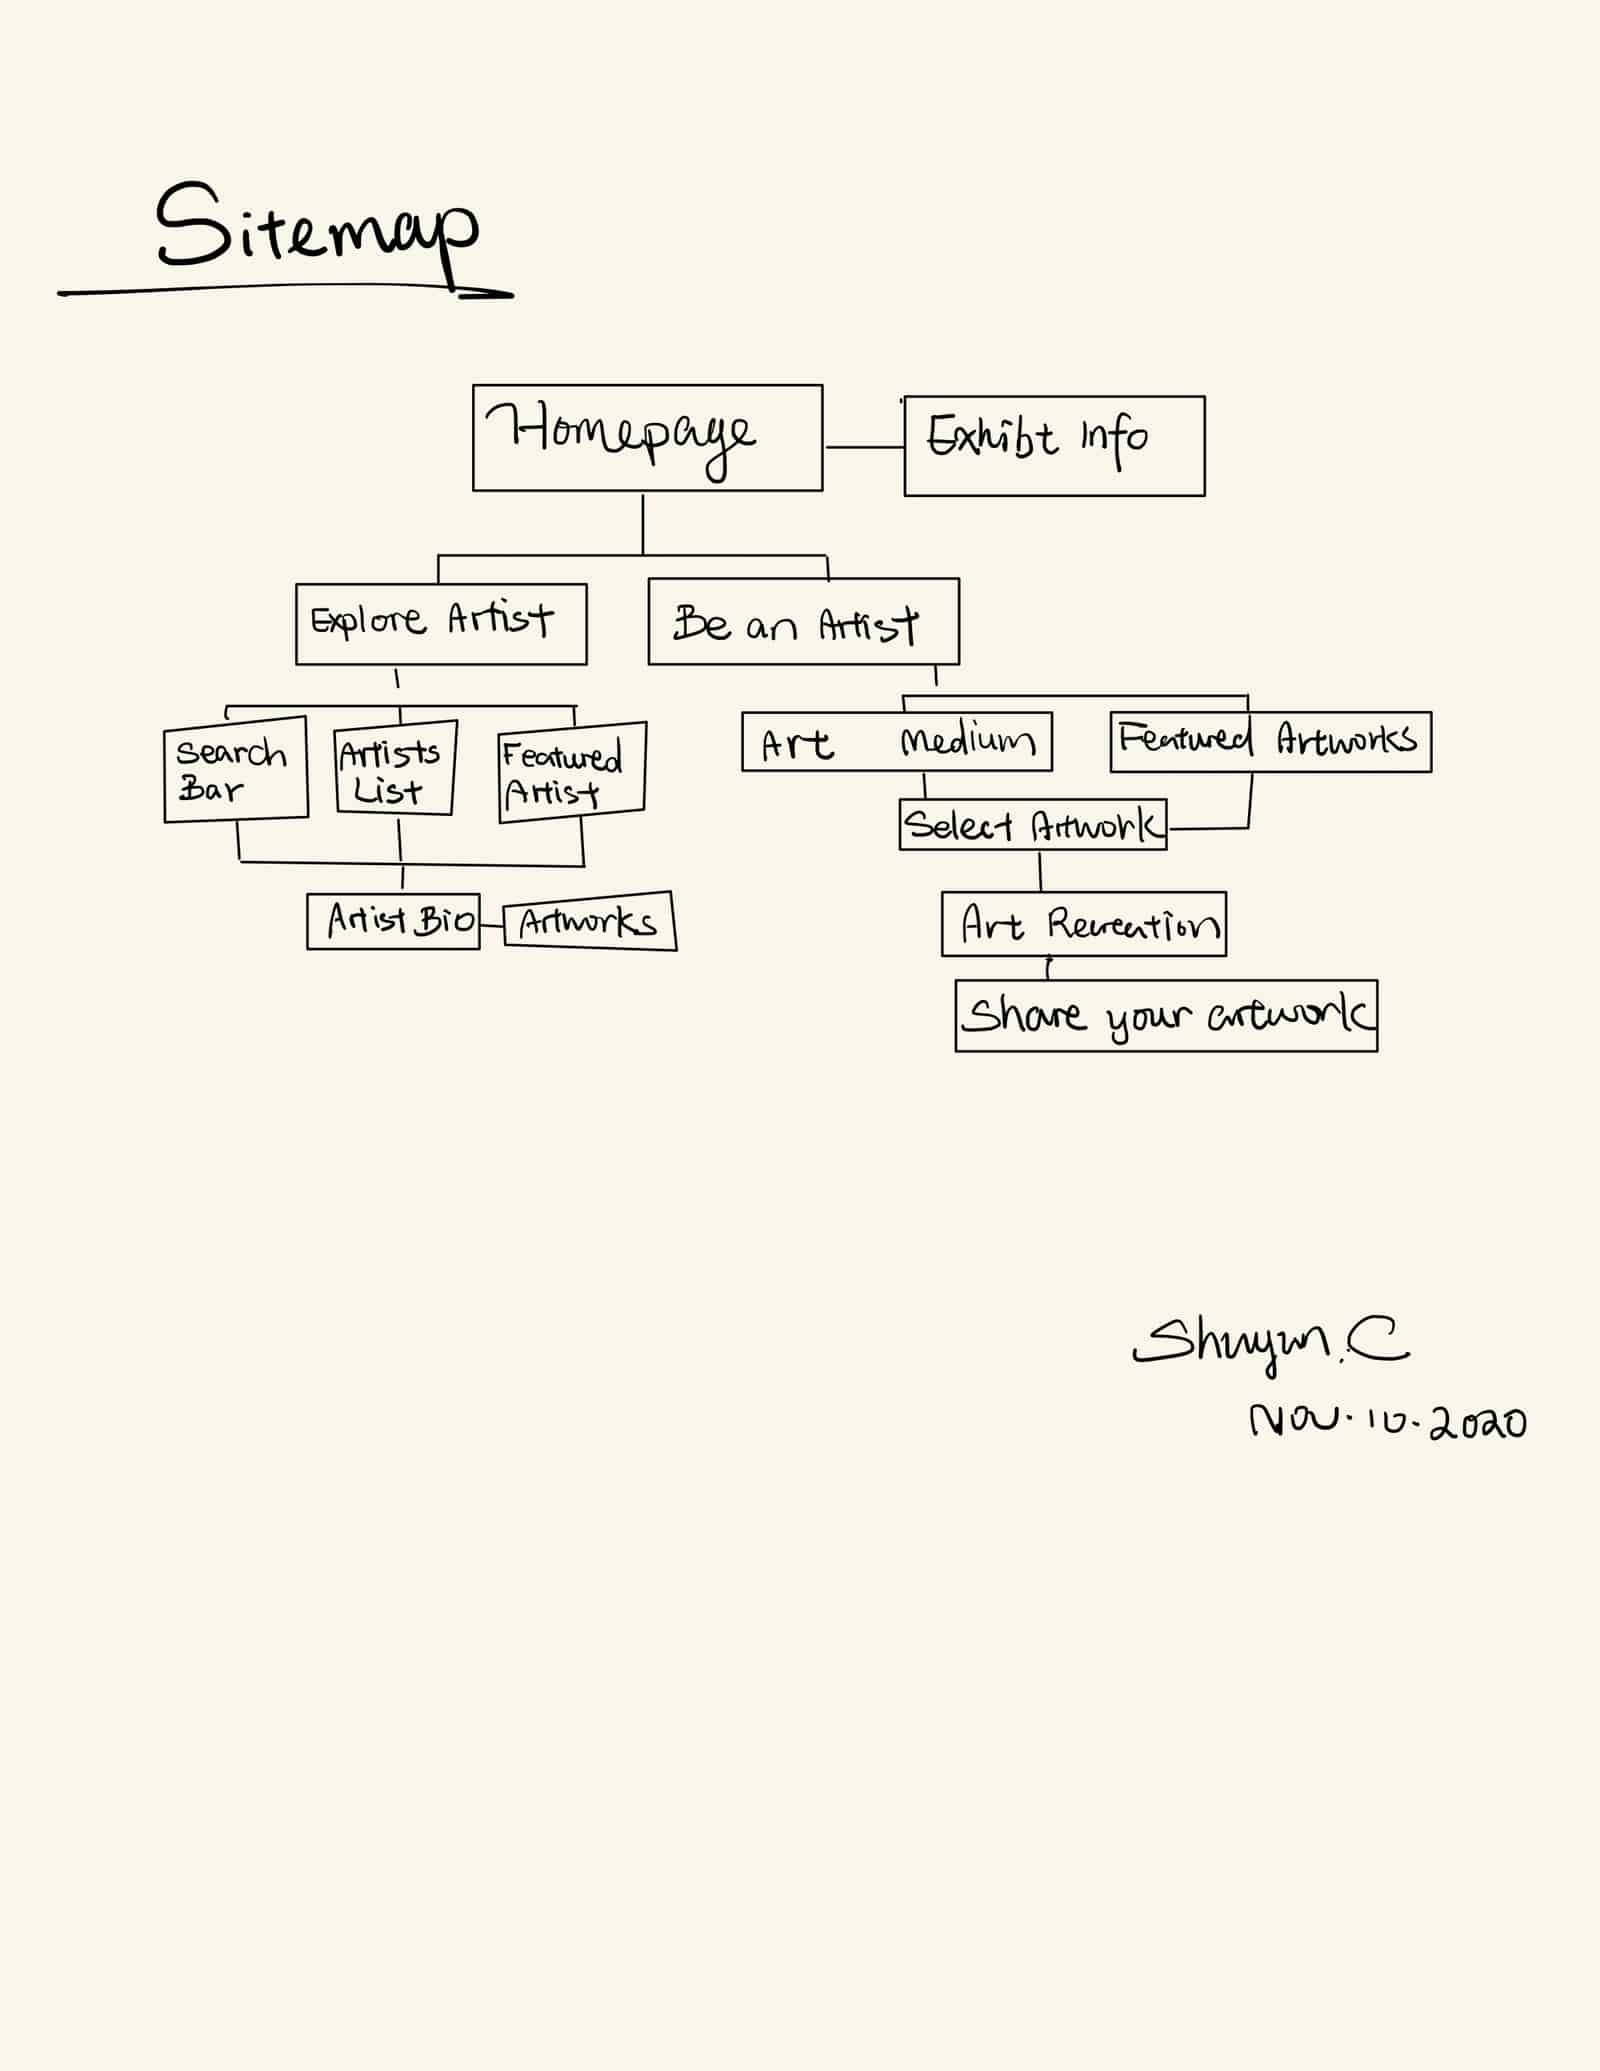 Sitemap
Homepage
Exhibt Info
Explore Artist
Be an Artist
Search
Bar
Artists
List
Featured
Artist
Art Medium
Featured Artworks
Select Artwork
Artist Bio
Artworks
Art Recreation
Share your artwork
Shuyun.C
Nov.10.2020